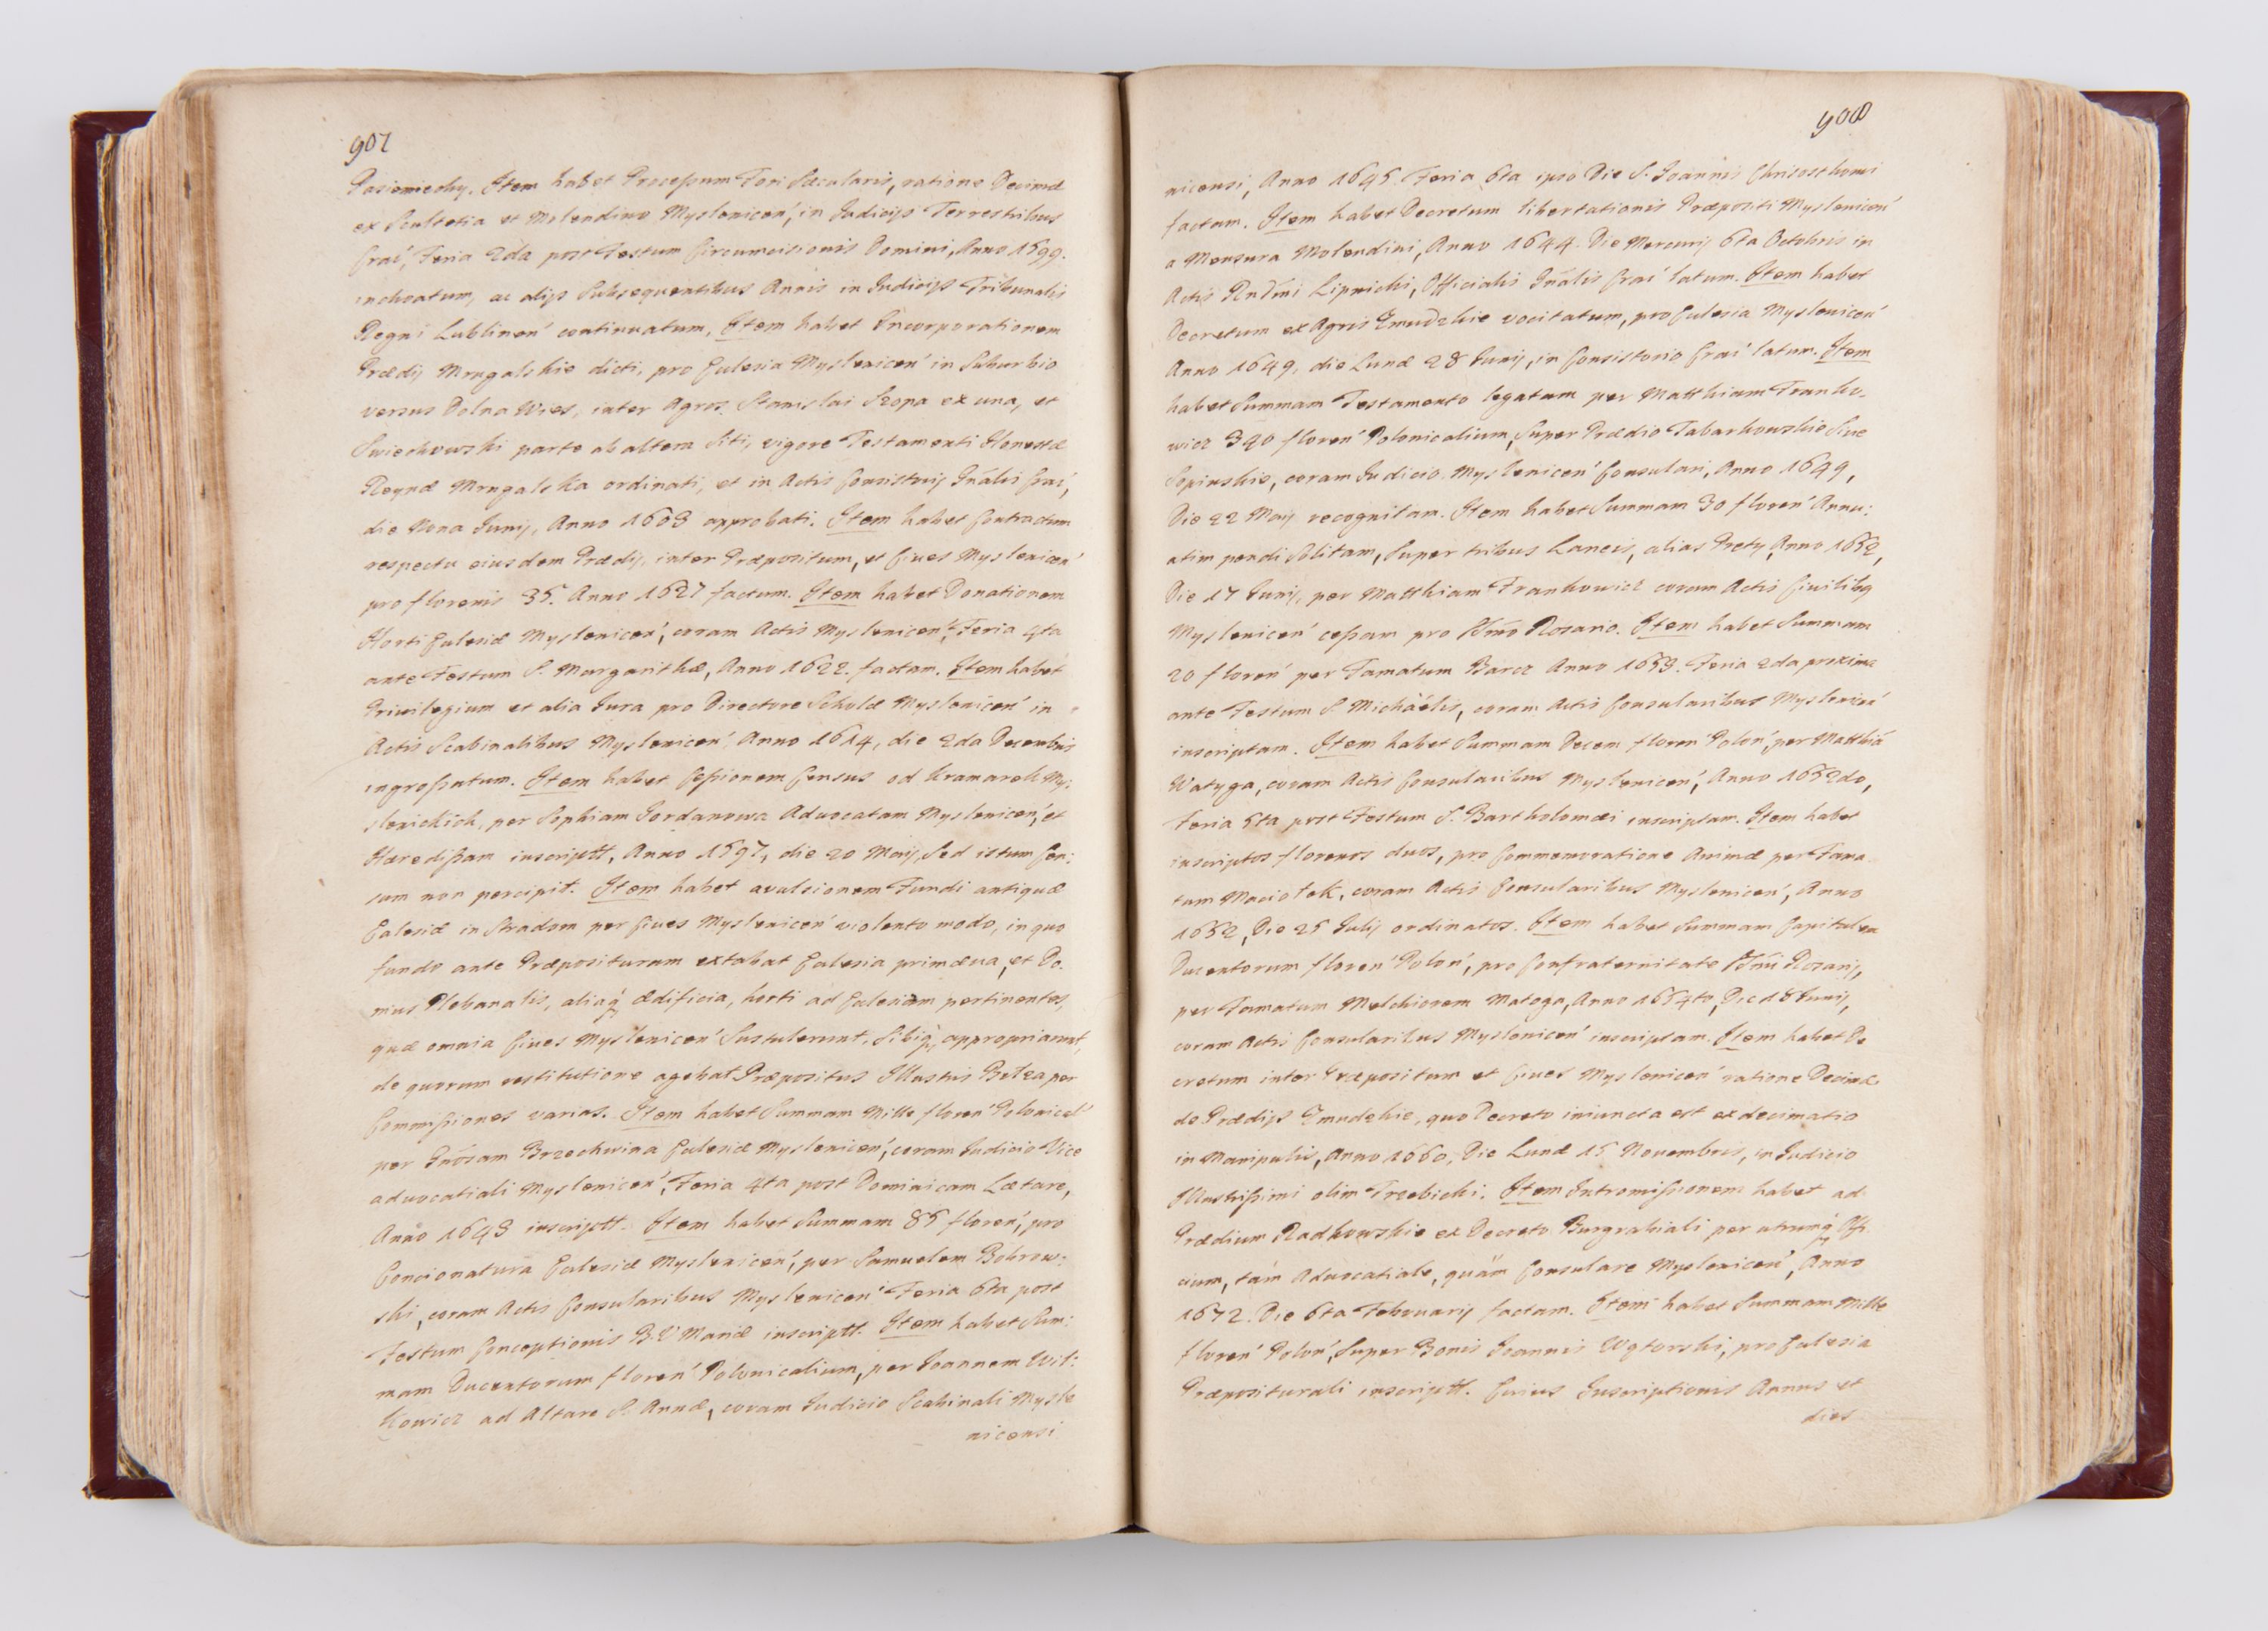 907
Pasieniechy. Item habet Processum Fori Sæcularis, ratione Decimæ
ex Scultetia et Molendino Myslenicen', in Judicijs Terrestribus
Crac', Feria 2da post Festum Circumcisionis Domini, Anno 1599.
inchoatum, ac alijs Subsequentibus Annis in Judicijs Tribunalis
Regni Lublinen' continuatum. Item habet Incorporationem
Prædij Mrugalskie dicti, pro Eclesia Myslenicen' in Suburbio
versus Dolna Wies, inter Agros Stanislai Szopa ex una, et
Swiechowski parte ab altera Siti, vigore Testamenti Honestæ
Reynæ Mrugalska ordinati, et in Actis Consistorij Gnalis Crac',
die Nona Junij, Anno 1603 approbati. Item habet Contractum
respectu eiusdem Prædij, inter Præpositum, et Cives Myslenicen'
pro florenis 35. Anno 1627 factum. Item habet Donationem
Horti Eclesiæ Myslenicen', coram Actis Myslenicen', Feria 4ta
ante Festum S. Margarithæ, Anno 1622. factam. Item habet
Privilegium et alia Jura pro Directore Scholæ Myslenicen' in
Actis Scabinalibus Myslenicen', Anno 1614, die 2da Decembris
ingrossatum. Item habet Cessionem Census od Kramarek My:
slenickich, per Sophiam Jordanowa Advocatam Myslenicen', et
Hæredissam inscriptt, Anno 1597, die 20 Maij, Sed istum Cen:
sum non percipit. Item habet avulsionem Fundi antiquæ
Eclesiæ in Stradom per Cives Myslenicen' violento modo, in quo
fundo ante Præposituram extabat Eclesia primæva, et Do:
mus Plebanalis, aliaq, ædificia, horti ad Eclesiam pertinentes,
quæ omnia Cives Myslenicen' Sustulerunt, Sibiq, appropriarunt,
de quorum restitutione agebat Præpositus Illustris Bełza per
Commissiones varias. Item habet Summam Mille floren' Polonical'
per Gnosam Brzechwina Eclesiæ Myslenicen', coram Judicio Vice
advocatiali Myslenicen', Feria 4ta post Dominicam Lætare,
Anno 1643 inscriptt. Item habet Summam 85 floren', pro
Concionatura Eclesiæ Myslenicen', per Samuelem Bobrow:
ski, coram Actis Consularibus Myslenicen' Feria 6ta post
Festum Conceptionis B. V. Mariæ inscriptt. Item habet Sum:
mam Ducentorum floren' Polonicalium, per Joannem Wil:
kowicz ad Altare S. Annæ, coram Judicio Scabinali Mysle
nicensi
908
nicensi, Anno 1645 Feria 6ta ipso Die S. Joannis Chrisosthomi
factam. Item habet Decretum libertationis Præpositi Myslenicen'
a Mensura Molendini, Anno 1644. Die Mercurij 6ta Octobris in
Actis Rndmi Lipnicki, Officialis Gnalis Crac' latum. Item habet
Decretum ex Agris Zmudzkie vocitatum, pro Eclesia Myslenicen'
Anno 1649, die Lunæ 28 Junij, in Consistorio Crac' latum. Item
habet Summam Testamento legatam per Matthiam Franko-
wicz 390 floren' Polonicalium, Super Prædio Tabarkowskie Sive
Sepinskie, coram Judicio Myslenicen' Consulari, Anno 1649,
Die 22 Maij recognitam. Item habet Summam 30 floren' Annu:
atim pendi Solitam, Super tribus Laneis, alias Prety, Anno 1652,
Die 17 Junij, per Matthiam Frankowicz coram Actis Civilibq
Myslenicen' cessam pro SSmo Rosario. Item habet Summam
20 floren' per Famatum Barcz Anno 1653. Feria 2da proxima
ante Festum S. Michäelis, coram Actis Consularibus Myslenicen'
inscriptam. Item habet Summam Decem floren' Polon', per Matthiä
Watyga, coram Actis Consularibus Myslenicen', Anno 1652do,
Feria 6ta post Festum S. Bartholomæi inscriptam. Item habet
inscriptos florenos duos, pro Commemoratione Animæ per Fama
tum Maciotek, coram Actis Consularibus Myslenicen', Anno
1652, Die 25 Julij ordinatos. Item habet Summam Capitalem
Ducentorum floren' Polon', pro Confraternitate SSmi Rosarij,
per Famatum Melchiorem Matoga, Anno 1654to, Die 18 Junij,
coram Actis Consularibus Myslenicen' inscriptam. Item habet De
cretum inter Præpositum et Cives Myslenicen' ratione Decimæ
de Prædijs Zmudzkie, quo Decreto iniuncta est exdecimatio
in Manipulis, Anno 1660, Die Lunæ 15 Novembris, in Judicio
Illustrissimi olim Trzebicki. Item Intromissionem habet ad
Prædium Radkowskie ex Decreto Burgrabiali per utrumq, Offi
cium, täm Advocatiale, quäm Consulare Myslenicen', Anno
1672. Die 6ta Februarij factam. Item habet Summam Mille
floren' Polon', Super Bonis Joannis Wątorski, pro Eclesia
Præpositurali inscriptt. Cuius Inscriptionis Annus et
dies